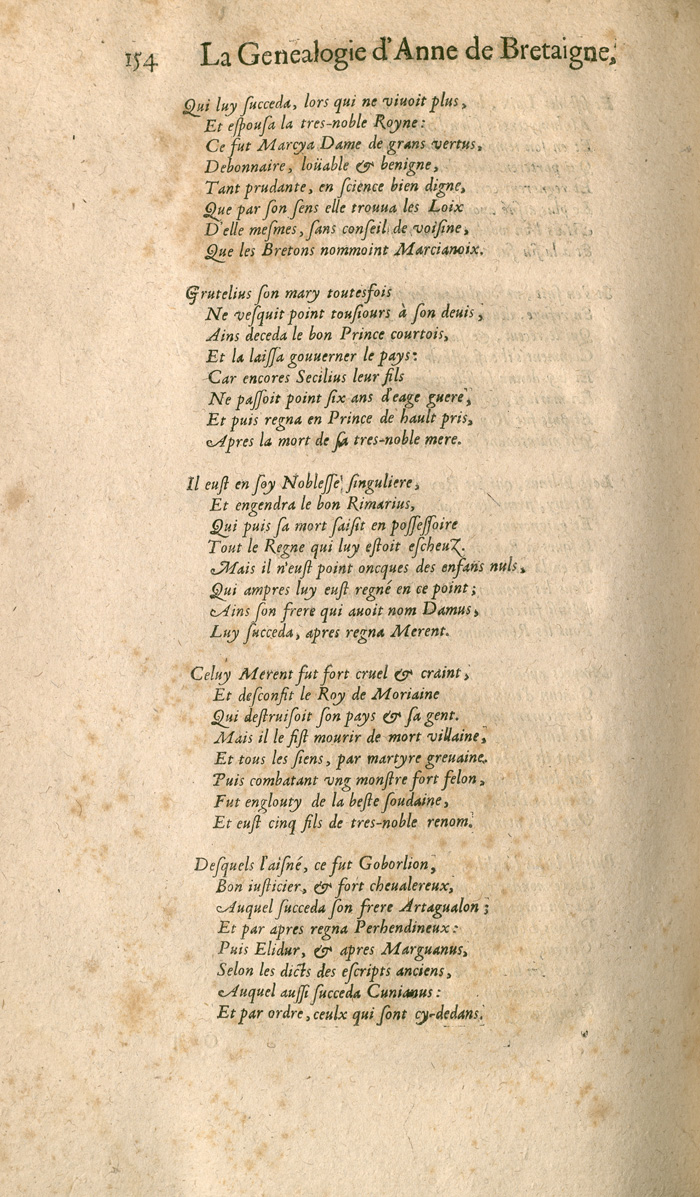 154 La Genealogie d'Anne de Bretaigne,
Qui luy succeda, lors qui ne viuoit plus,
Et espousa la tres-noble Royne:
Ce fut Marcya Dame de grans vertus,
Debonnaire, loüable & benigne,
Tant prudante, en science bien digne,
Que par son sens elle trouua les Loix
D'elle mesmes, sans conseil de voisine,
Que les Bretons nommoint Marcianoix.
Grutelius son mary toutesfois
Ne vesquit point tousiours à son deuis,
Ains deceda le bon Prince courtois,
Et la laissa gouuerner le pays:
Car encores Secilius leur fils
Ne passoit point six ans d'eage guere,
Et puis regna en Prince de hault pris,
Apres la mort de sa tres-noble mere.
Il eust en soy Noblesse singuliere,
Et engendra le bon Rimarius,
Qui puis sa mort saisit en possessoire
Tout le Regne qui luy estoit escheuz.
Mais il n'eust point oncques des enfans nuls,
Qui ampres luy eust regné en ce point;
Ains son frere qui auoit nom Damus,
Luy succeda, apres regna Merent.
Celuy Merent fut fort cruel & craint,
Et desconfit le Roy de Moriaine
Qui destruisoit son pays & sa gent.
Mais il le fist mourir de mort villaine,
Et tous les siens, par martyre greuaine.
Puis combatant vng monstre fort felon,
Fut englouty de la beste soudaine,
Et eust cinq fils de tres-noble renom.
Desquels l'aisné, ce fut Goborlion,
Bon iusticier, & fort cheualereux,
Auquel succeda son frere Artagualon;
Et par apres regna Perhendineux:
Puis Elidur, & apres Marguanus,
Selon les dicts des escripts anciens,
Auquel aussi succeda Cunianus:
Et par ordre, ceulx qui sont cy-dedans.